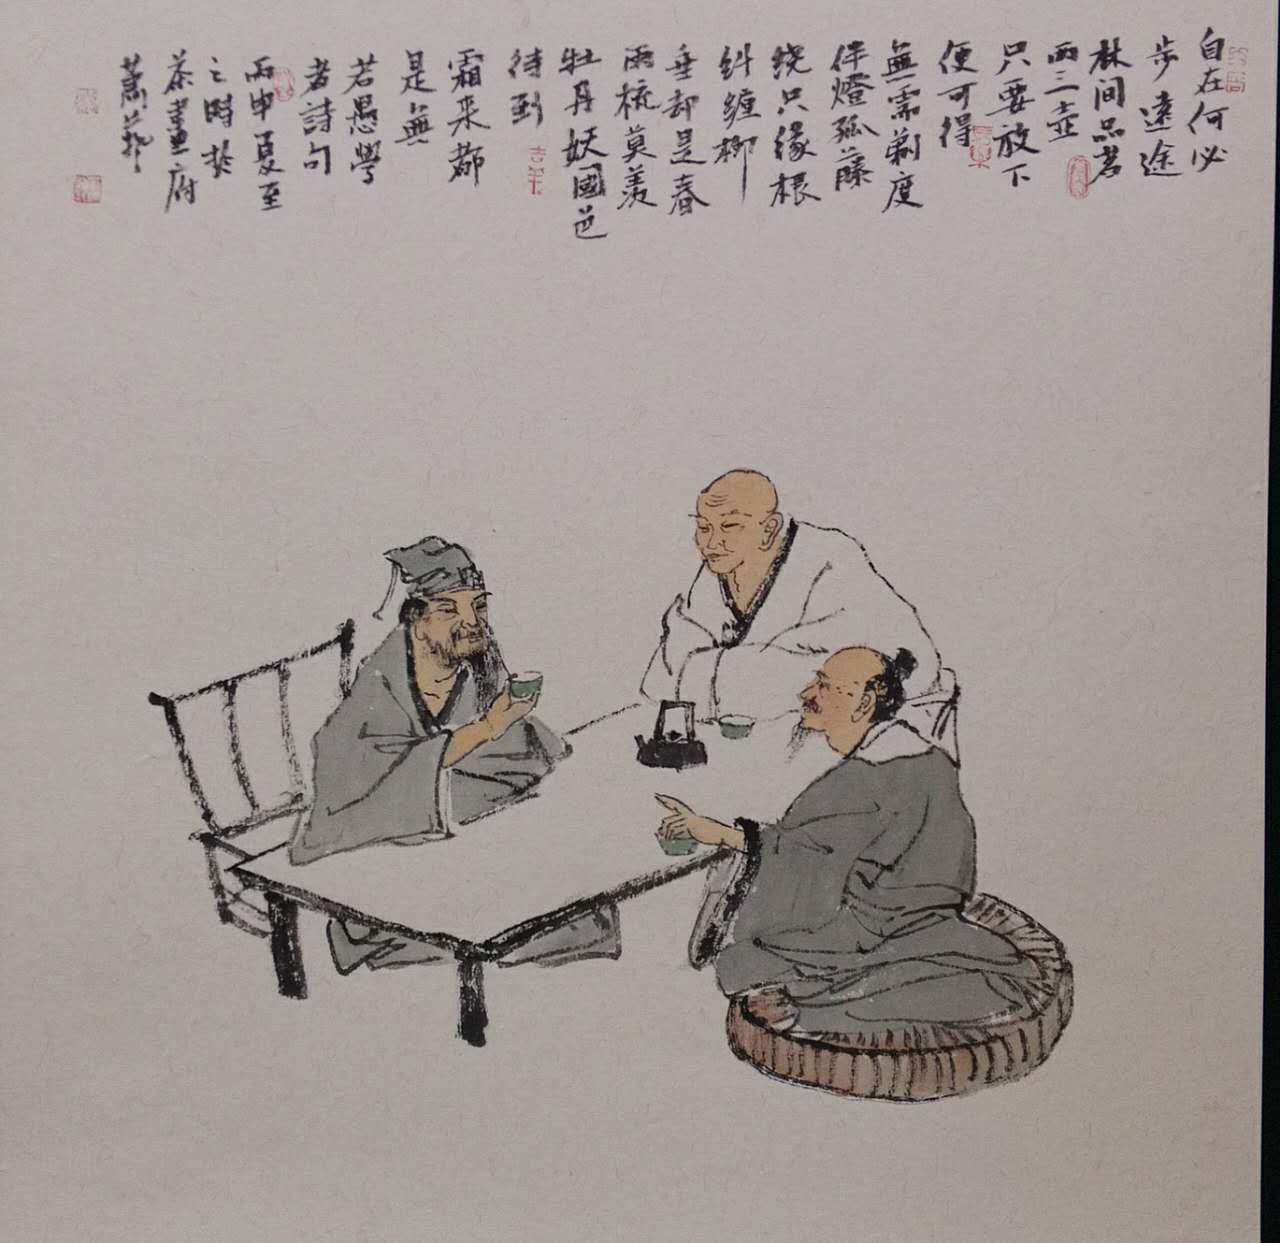 自在何必
步遠途
林间品茗
两三壶
只要放下
便可得
無需剃度
伴燈孤藤
绕只缘根
纠缠柳
垂却是春
雨梳莫羡
牡丹妖國色
待到
霜来都
是無
若愚學
者詩句
丙申夏至
之時於
茶畫府